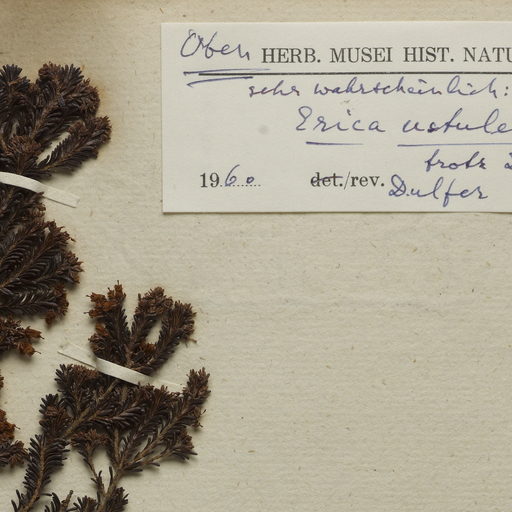 Oben HERB. MUSEI HIST. NATU
sehr wahrscheinlich:
Erica ustule
trotz
1960 det./rev. Dulfer